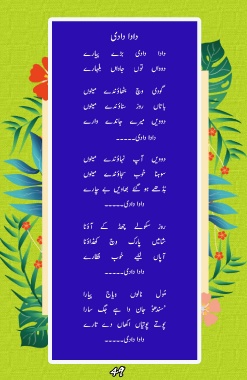 دادا دادی
دادا دادی بڑے پیارے
دوواں توں جاواں بلہارے
گودی وچ بٹھاوندے مینوں
باتاں روز سناوندے مینوں
دوویں میرے جاندے وارے
دادا دادی۔۔۔۔۔
دوویں آپ نہاوندے مینوں
سوہنا خوب سجاوندے مینوں
بڈھے ہو گئے بھانویں بے چارے
دادا دادی۔۔۔۔۔
روز سکولے چھڈ کے آؤنا
شامیں پارک وچ کھڈاؤنا
آہاں لئیے خوب نظارے
دادا دادی۔۔۔۔۔
مول نالوں ویاج پیارا
سندھو جان دا ہے جگ سارا
پوتے پوتیاں اکھاں دے تارے
دادا دادی۔۔۔۔۔